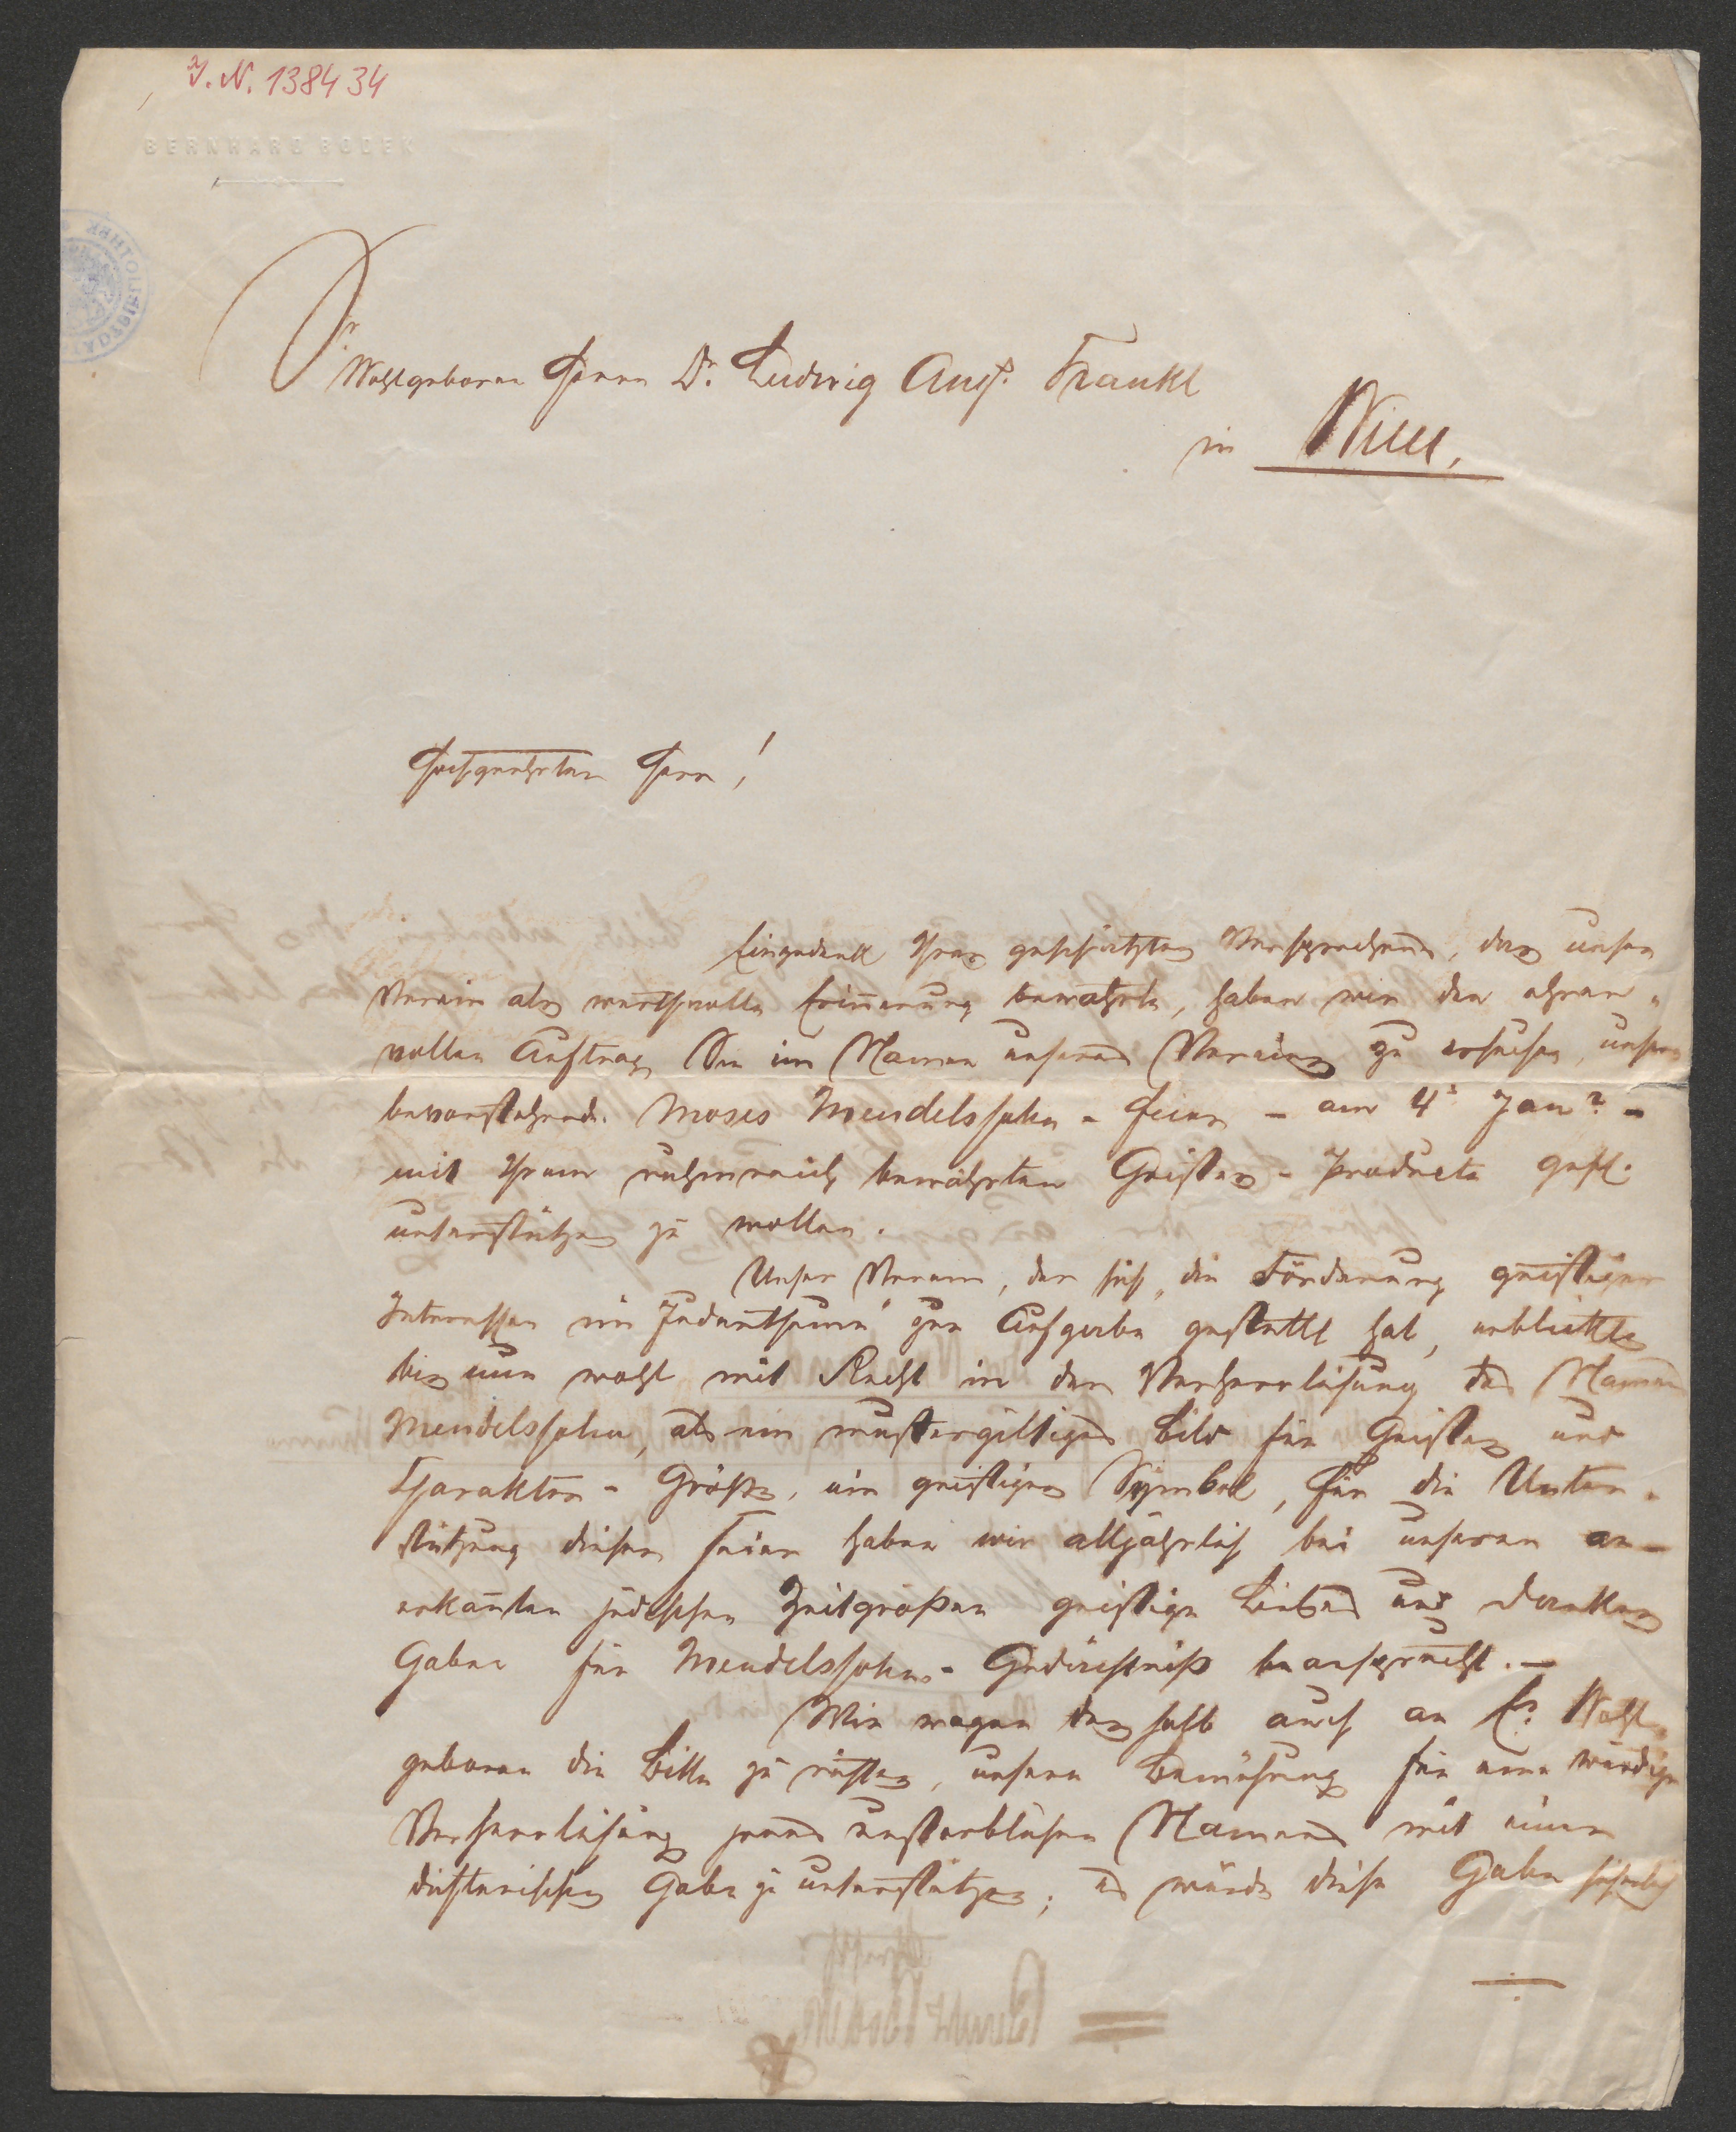 J. N. 138434
BERNHARD BODEK
Sr
Wohlgeboren Herrn Dr. Ludwig Aug. Frankl
in Wien.
Hochgeehrter Herr!
Eingedenk Ihres geschätzten Versprechens, das unser
Verein als werthvolle Erinnerung bewahrte, haben wir den ehren-
vollen Auftrag Sie im Namen unseres Vereines zu ersuchen, unsere
bevorstehende Moses Mendelssohn - Feier - am 4t Jann. -
mit Ihrem ruhmreich bewährten Geistes - Producte gefl.
unterstützen zu wollen.
Unser Verein, der sich "die Förderung geistiger
Interessen im Judenthume" zur Aufgabe gestellt hat, erblickte
bis nun wohl mit Recht in der Verherrlichung des Namens
Mendelssohn, als ein mustergiltiges Bild für Geistes und
Charakter - Größe, ein geistiges Symbol, für die Unter-
stützung dieser Feier haben wir alljährlich bei unseren an-
erkannten jüdischen Zeitgrößen geistige Liebes und Dankes
Gaben für Mendelssohn - Gedächtniß beansprucht. -
Wir wagen deshalb auch an Er. Wohl-
geboren die Bitte zu richten, unsere Bemühung für eine würdige
Verherrlichung jenes unsterblichen Namens mit einer
dichterischen Gabe zu unterstützen; es würde diese Gabe sicherlich